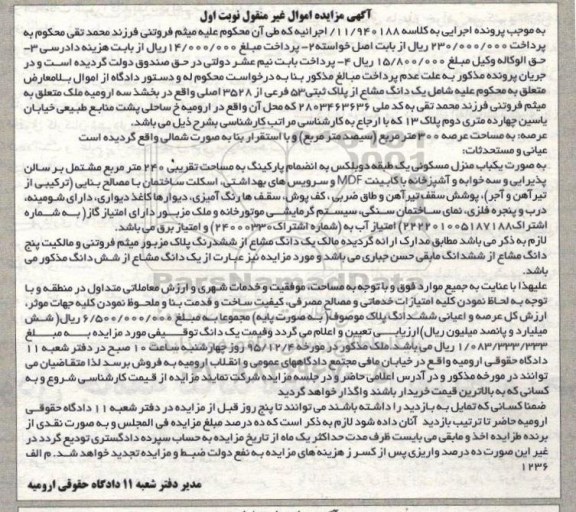 آگهی مزایده اموال غیر منقول نوبت اول
به موجب پرونده اجرایی به کلاسه ۱۱/۹۴۰۱۸۸ اجرائیه که طی آن محکوم علیه میثم فروتنی فرزند محمد تقی محکوم به
پرداخت ۲۳۰/۰۰۰/۰۰۰ ریال از بابت اصل خواسته ۲- پرداخت مبلغ ۱۴/۰۰۰/۰۰۰ ریال از بابت هزینه دادرسی ۳-
حق الوکاله وکیل مبلغ ۱۵/۸۰۰/۰۰۰ ریال ۴- پرداخت بابت نیم عشر دولتی در حق صندوق دولت گردیده است و در
جریان پرونده مذکور به علت عدم پرداخت مبالغ مذکور بنا به درخواست محکوم له و دستور دادگاه از اموال بلامعارض
متعلق به محکوم علیه شامل یک دانگ مشاع از پلاک ثبتی ۵۳ فرعی از ۳۵۲۸ اصلی واقع در بخش سه ارومیه ملک متعلق به
میثم فروتنی فرزند محمد تقی به کد ملی ۲۸۰۳۴۶۳۶۳۶ که محل آن واقع در ارومیه خ ساحلی پشت منابع طبیعی خیابان
یاسین چهارده متری دوم پلاک ۱۳ که با ارجاع به کارشناسی مراتب کارشناسی بشرح ذیل می باشد.
عرصه: به مساحت عرصه ۳۰۰ متر مربع (سیصد متر مربع) و با استقرار بنا به صورت شمالی واقع گردیده است
عیانی و مستحدثات:
به صورت یکباب منزل مسکونی یک طبقه دوبلکس به انضمام پارکینگ به مساحت تقریبی ۲۴۰ متر مربع مشتمل بر سالن
پذیرایی و سه خوابه و آشپزخانه با کابینت MDF و سرویس های بهداشتی، اسکلت ساختمان با مصالح بنایی (ترکیبی از
تیر آهن و آجر)، پوشش سقف تیر آهن و طاق ضربی، کف پوش، سقف ها رنگ آمیزی، دیوارها کاغذ دیواری، دارای شومینه،
درب و پنجره فلزی، نمای ساختمان سنگی، سیستم گرمایشی موتورخانه و ملک مزبور دارای امتیاز گاز (به شماره
اشتراک ۲۲۲۲۰۱۰۰۵۱۸۷۱۸۸) امتیاز آب به (شماره اشتراک ۲۴۰۰۰۳۰) و امتیاز برق می باشد.
لازم به ذکر می باشد مطابق مدارک ارائه گردیده مالک یک دانگ مشاع از ششدانگ پلاک مزبور میثم فروتنی و مالکیت پنج
دانگ مشاع از ششدانگ مابقی حسن جباری می باشد و مورد مزایده نیز عبارت از یک دانگ مشاع از شش دانگ مذکور می
باشد.
علیهذا با عنایت به جمیع موارد فوق و با توجه به مساحت، موقعیت و خدمات شهری و ارزش معاملاتی متداول در منطقه و با
توجه به لحاظ نمودن کلیه امتیازات خدماتی و مصالح مصرفی، کیفیت ساخت و قدمت بنا و ملحوظ نمودن کلیه جهات موثر،
ارزش کل عرصه و اعیانی ششدانگ پلاک موصوف (به صورت پایه) مجموعا به مبلغ ۶/۵۰۰/۰۰۰/۰۰۰ ریال (شش
میلیارد و پانصد میلیون ریال) ارزیابی تعیین و اعلام می گردد و قیمت یک دانگ توقیفی مورد مزایده به مبلغ
۱/۰۸۳/۳۳۳/۳۳۳ ریال می باشد. ملک مذکور در مورخه ۹۵/۱۲/۴ روز چهارشنبه ساعت ۱۰ صبح در دفتر شعبه ۱۱
دادگاه حقوقی ارومیه واقع در خیابان مافی مجتمع دادگاههای عمومی و انقلاب ارومیه به فروش برسد لذا متقاضیان می
توانند در مورخه مذکور و در آدرس اعلامی حاضر و در جلسه مزایده شرکت نمایند مزایده از قیمت کارشناسی شروع و به
کسانی که به بالاترین قیمت خریدار باشند واگذار خواهد گردید
ضمنا کسانی که تمایل به بازدید را داشته باشند می توانند تا پنج روز قبل از مزایده در دفتر شعبه ۱۱ دادگاه حقوقی
ارومیه حاضر تا ترتیب بازدید آنان داده شود لازم به ذکر است که ده درصد مبلغ مزایده فی المجلس و به صورت نقدی از
برنده مزایده اخذ و مابقی می بایست ظرف مدت حداکثر یک ماه از تاریخ مزایده به حساب سپرده دادگستری تودیع گردد در
غیر این صورت ده درصد واریزی پس از کسر هزینه های مزایده به نفع دولت ضبط و مزایده تجدید خواهد شد. م الف
۱۲۳۶
مدیر دفتر شعبه ۱۱ دادگاه حقوقی ارومیه